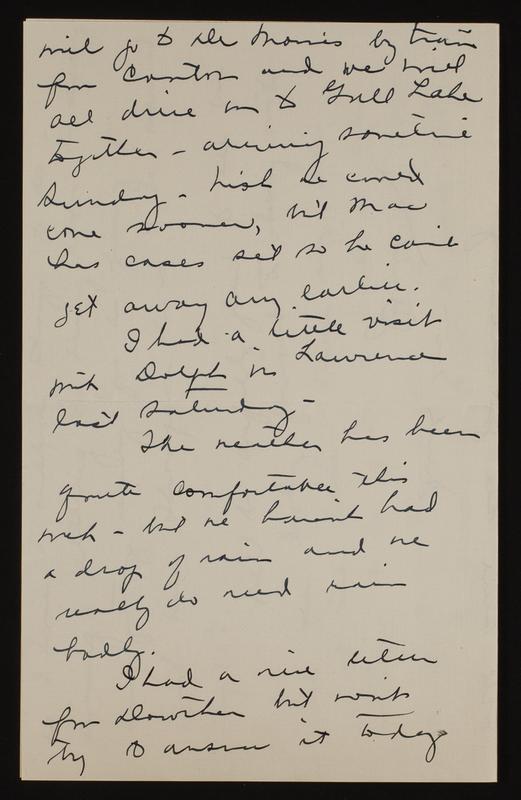 will go to Des Moines by train
from Canton and we will
all drive on to Gull Lake
together - arriving sometime
Sunday - Wish we could
come sooner, but Mac
has cases set so he can't
get away any earlier.
I had a little visit
with Dolph in Lawrence
last Saturday -
The weather has been
quite comfortable this
week - but we haven't had
a drop of rain and we
really do need rain
badly.
I had a nice letter
from but won't
try to answer it today